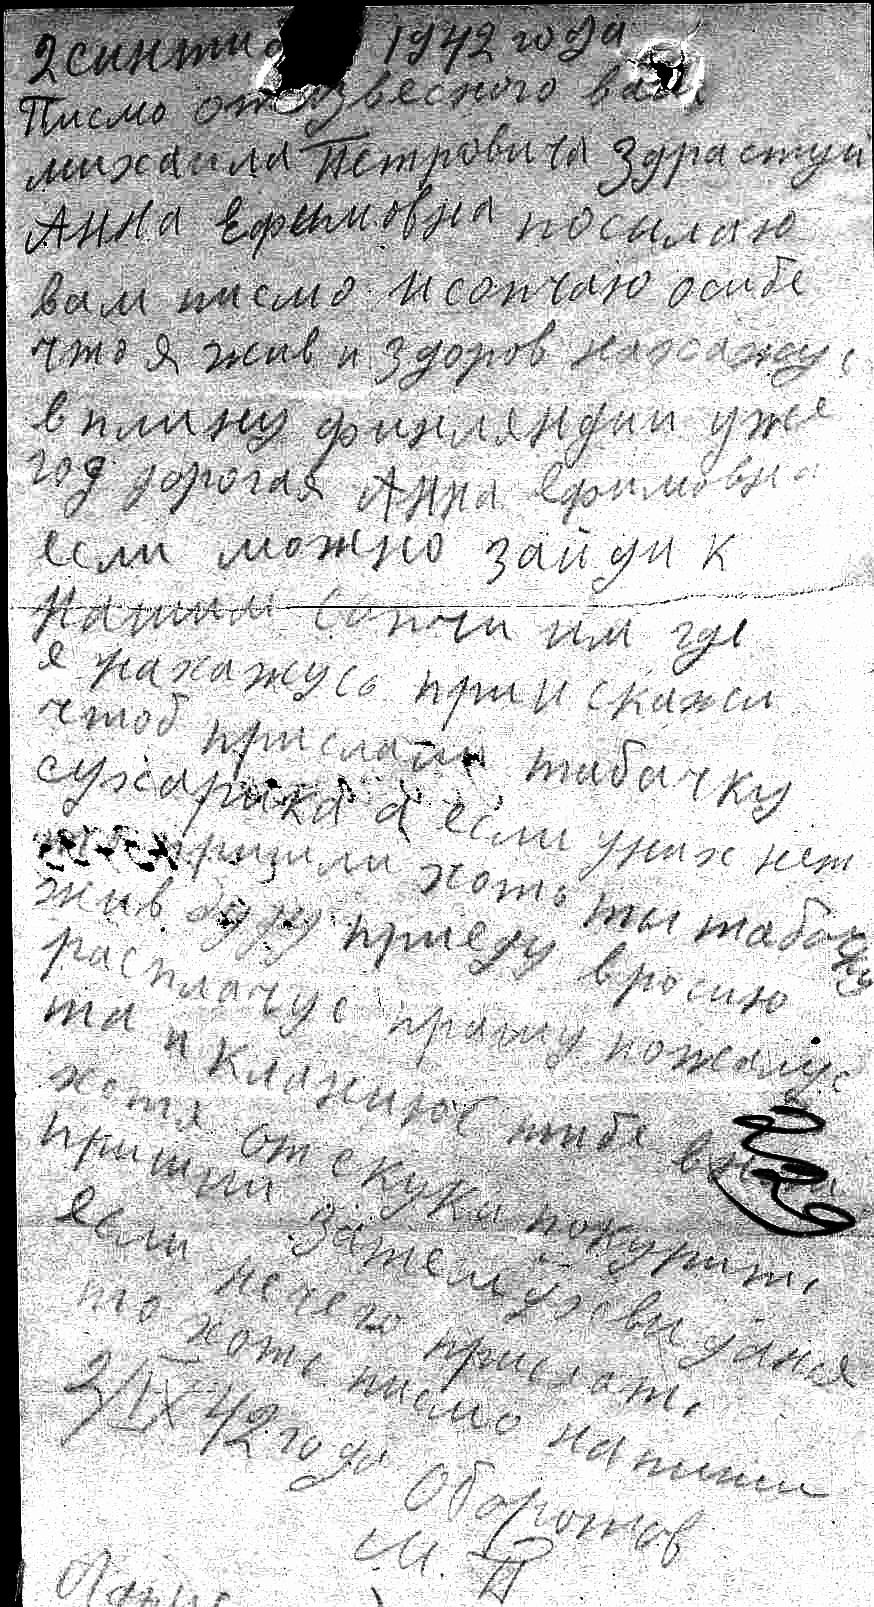 2 синтяб 1942 года
Писмо от извесного вам
михаила Петровича Здрастуй
Анна Ефимовна посилаю
вам писмо и сопчаю осибе
что я жив и здоров нахажус
в плину финляндии уже
год дорогая Анна ефимовна
если можно зайди к
нашим сопчи им где
я нахажусь при и скажи
чтоб прислали табачку
сухарика а если у них нет
пришли хоть ты табачку
жив буду приеду в росию
расплачус прашу пожалус
та и кланиюс тибе
хотя от скуки покурит,
пришли Затем досвиданья
если нечего прислат,
то хоте писмо напиши
2/IX 42 года
Оборотов
М. П